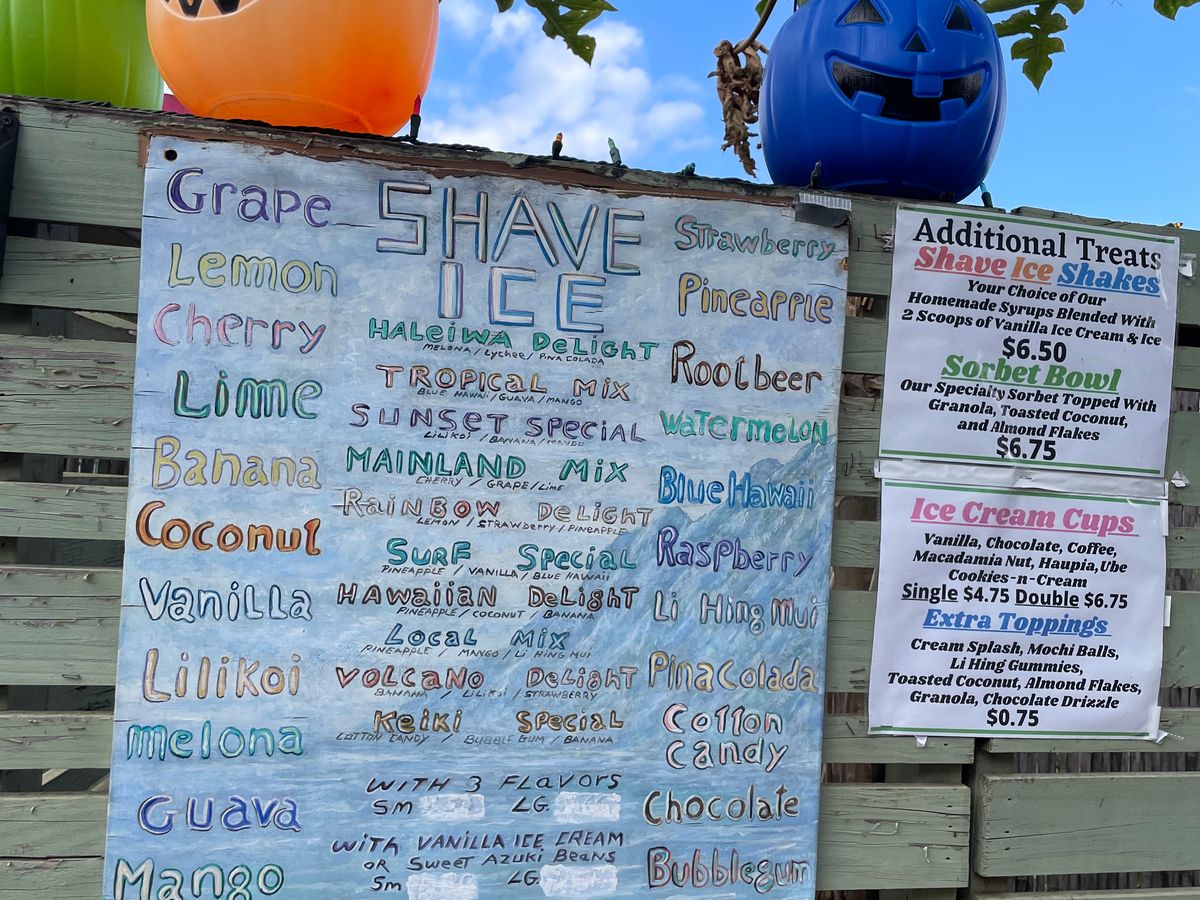 Grape
Lemon
Cherry
Lime
Banana
Coconut
Vanilla
Lilikoi
melona
Guava
Mango
SHAVE
ICE
HALEIWA DELIGHT
MELONA / Lychee / PINA COLADA
TROPICAL MIX
BLUE HAWAII / GUAVA / MANGO
SUNSET SPECIAL
LILIKOI / BANANA / MANGO
MAINLAND MIX
CHERRY / GRAPE / LIME
RAINBOW DELIGHT
LEMON / STRAWBERRY / PINEAPPLE
SURF SPECIAL
PINEAPPLE / VANILLA / BLUE HAWAII
HAWAIIAN DELIGHT
PINEAPPLE / COCONUT / BANANA
LOCAL MIX
PINEAPPLE / MANGO / LI HING MUI
VOLCANO DELIGHT
BANANA / LILIKOI / STRAWBERRY
KEIKI SPECIAL
COTTON CANDY / BUBBLE GUM / BANANA
WITH 3 FLAVORS
Sm LG.
WITH VANILLA ICE CREAM
OR SWEET AZUKI BEANS
Sm LG.
Strawberry
Pineapple
Rootbeer
Watermelon
Blue Hawaii
Raspberry
Li Hing Mui
Pina Colada
Cotton
Candy
Chocolate
Bubblegum
Additional Treats
Shave Ice Shakes
Your Choice of Our
Homemade Syrups Blended With
2 Scoops of Vanilla Ice Cream & Ice
$6.50
Sorbet Bowl
Our Specialty Sorbet Topped With
Granola, Toasted Coconut,
and Almond Flakes
$6.75
Ice Cream Cups
Vanilla, Chocolate, Coffee,
Macadamia Nut, Haupia, Ube
Cookies-n-Cream
Single $4.75 Double $6.75
Extra Toppings
Cream Splash, Mochi Balls,
Li Hing Gummies,
Toasted Coconut, Almond Flakes,
Granola, Chocolate Drizzle
$0.75